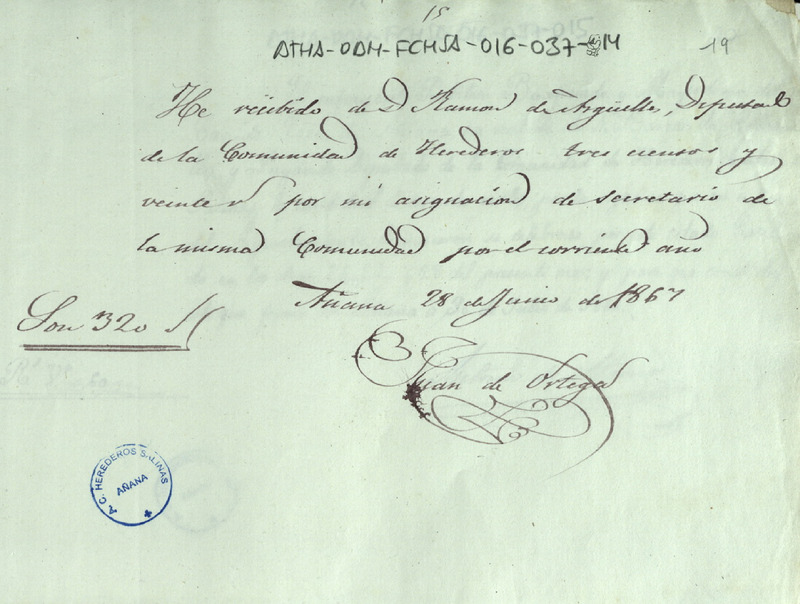 15
ATHA-ODM-FCHSA-016-037-14
19
He recibido de D Ramon de Argüelles, Diputado
de la Comunidad de Herederos tres cientos y
veinte r por mi asignacion de secretario de
la misma Comunidad por el corriente año
Añana 28 de Junio de 1867
Son 320 r
Juan de Ortega
A. C. HEREDEROS SALINAS
AÑANA